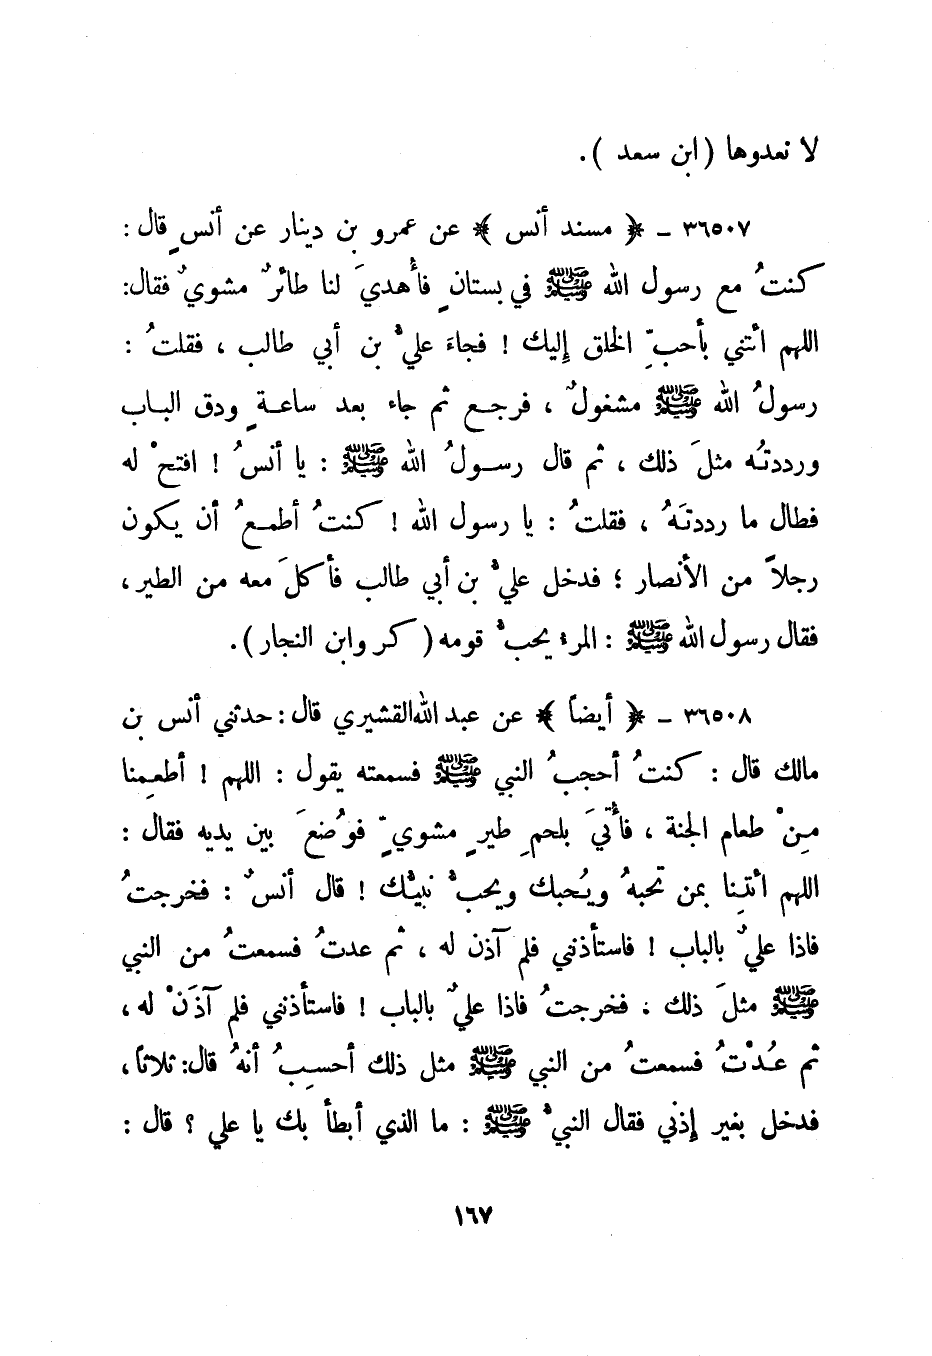 لا نعدوها (ابن سعد ).
٣٦٥٠٧ ــ ﴿ مسند أنس ﴾ عن عمرو بن دينار عن أنسٍ قال :
كنتُ مع رسول الله ﷺ في بستانٍ فأُهديَ لنا طائرٌ مشويٌ فقال:
اللهم ائتني بأحبِّ الخلق إليك ! فجاءَ عليُّ بن أبي طالب ، فقلتُ :
رسولُ الله ﷺ مشغولٌ ، فرجع ثم جاء بعد ساعةٍ ودق الباب
ورددتُه مثلَ ذلك ، ثم قال رسولُ الله ﷺ : يا أنسُ ! افتحْ له
فطال ما رددتَهُ ، فقلتُ : يا رسول الله ! كنتُ أطمعُ أن يكون
رجلاً من الأنصار ؛ فدخل عليُّ بن أبي طالب فأكلَ معه من الطير ،
فقال رسول الله ﷺ : المرء يحبُّ قومه ( كر وابن النجار ).
٣٦٥٠٨ ــ ﴿ أيضاً ﴾ عن عبد الله القشيري قال : حدثني أنس بن
مالك قال : كنتُ أحجبُ النبي ﷺ فسمعته يقول : اللهم ! أطعِمنا
مِنْ طعام الجنة ، فأُتيَ بلحمِ طيرٍ مشويٍّ فوُضعَ بين يديه فقال :
اللهم ائتِنا بمن تحبهُ ويُحبك ويحبُّ نبيَّك ! قال أنسٌ : فخرجتُ
فاذا عليٌ بالباب ! فاستأذنني فلم آذن له ، ثم عدتُ فسمعتُ من النبي
ﷺ مثلَ ذلك ؛ فخرجتُ فاذا عليٌ بالباب ! فاستأذنني فلم آذَنْ له ،
ثم عُدْتُ فسمعتُ من النبي ﷺ مثل ذلك أحسِبُ أنهُ قال: ثلاثاً ،
فدخل بغير إذني فقال النبيُّ ﷺ : ما الذي أبطأ بك يا علي ؟ قال :
١٦٧